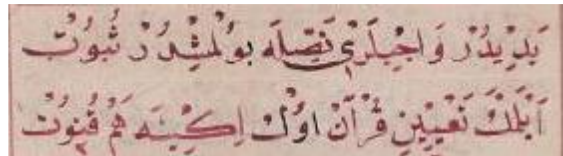 يَدِيدُرْ وَاجِبلَرِى نَصِّلَه بُولْمِشْدُرْ ثُبُوتْ
اَبْلَكْ تَعْيِينِ قُرْآنْ اوَّلْ اِكِينَه هَمْ قُنُوتْ